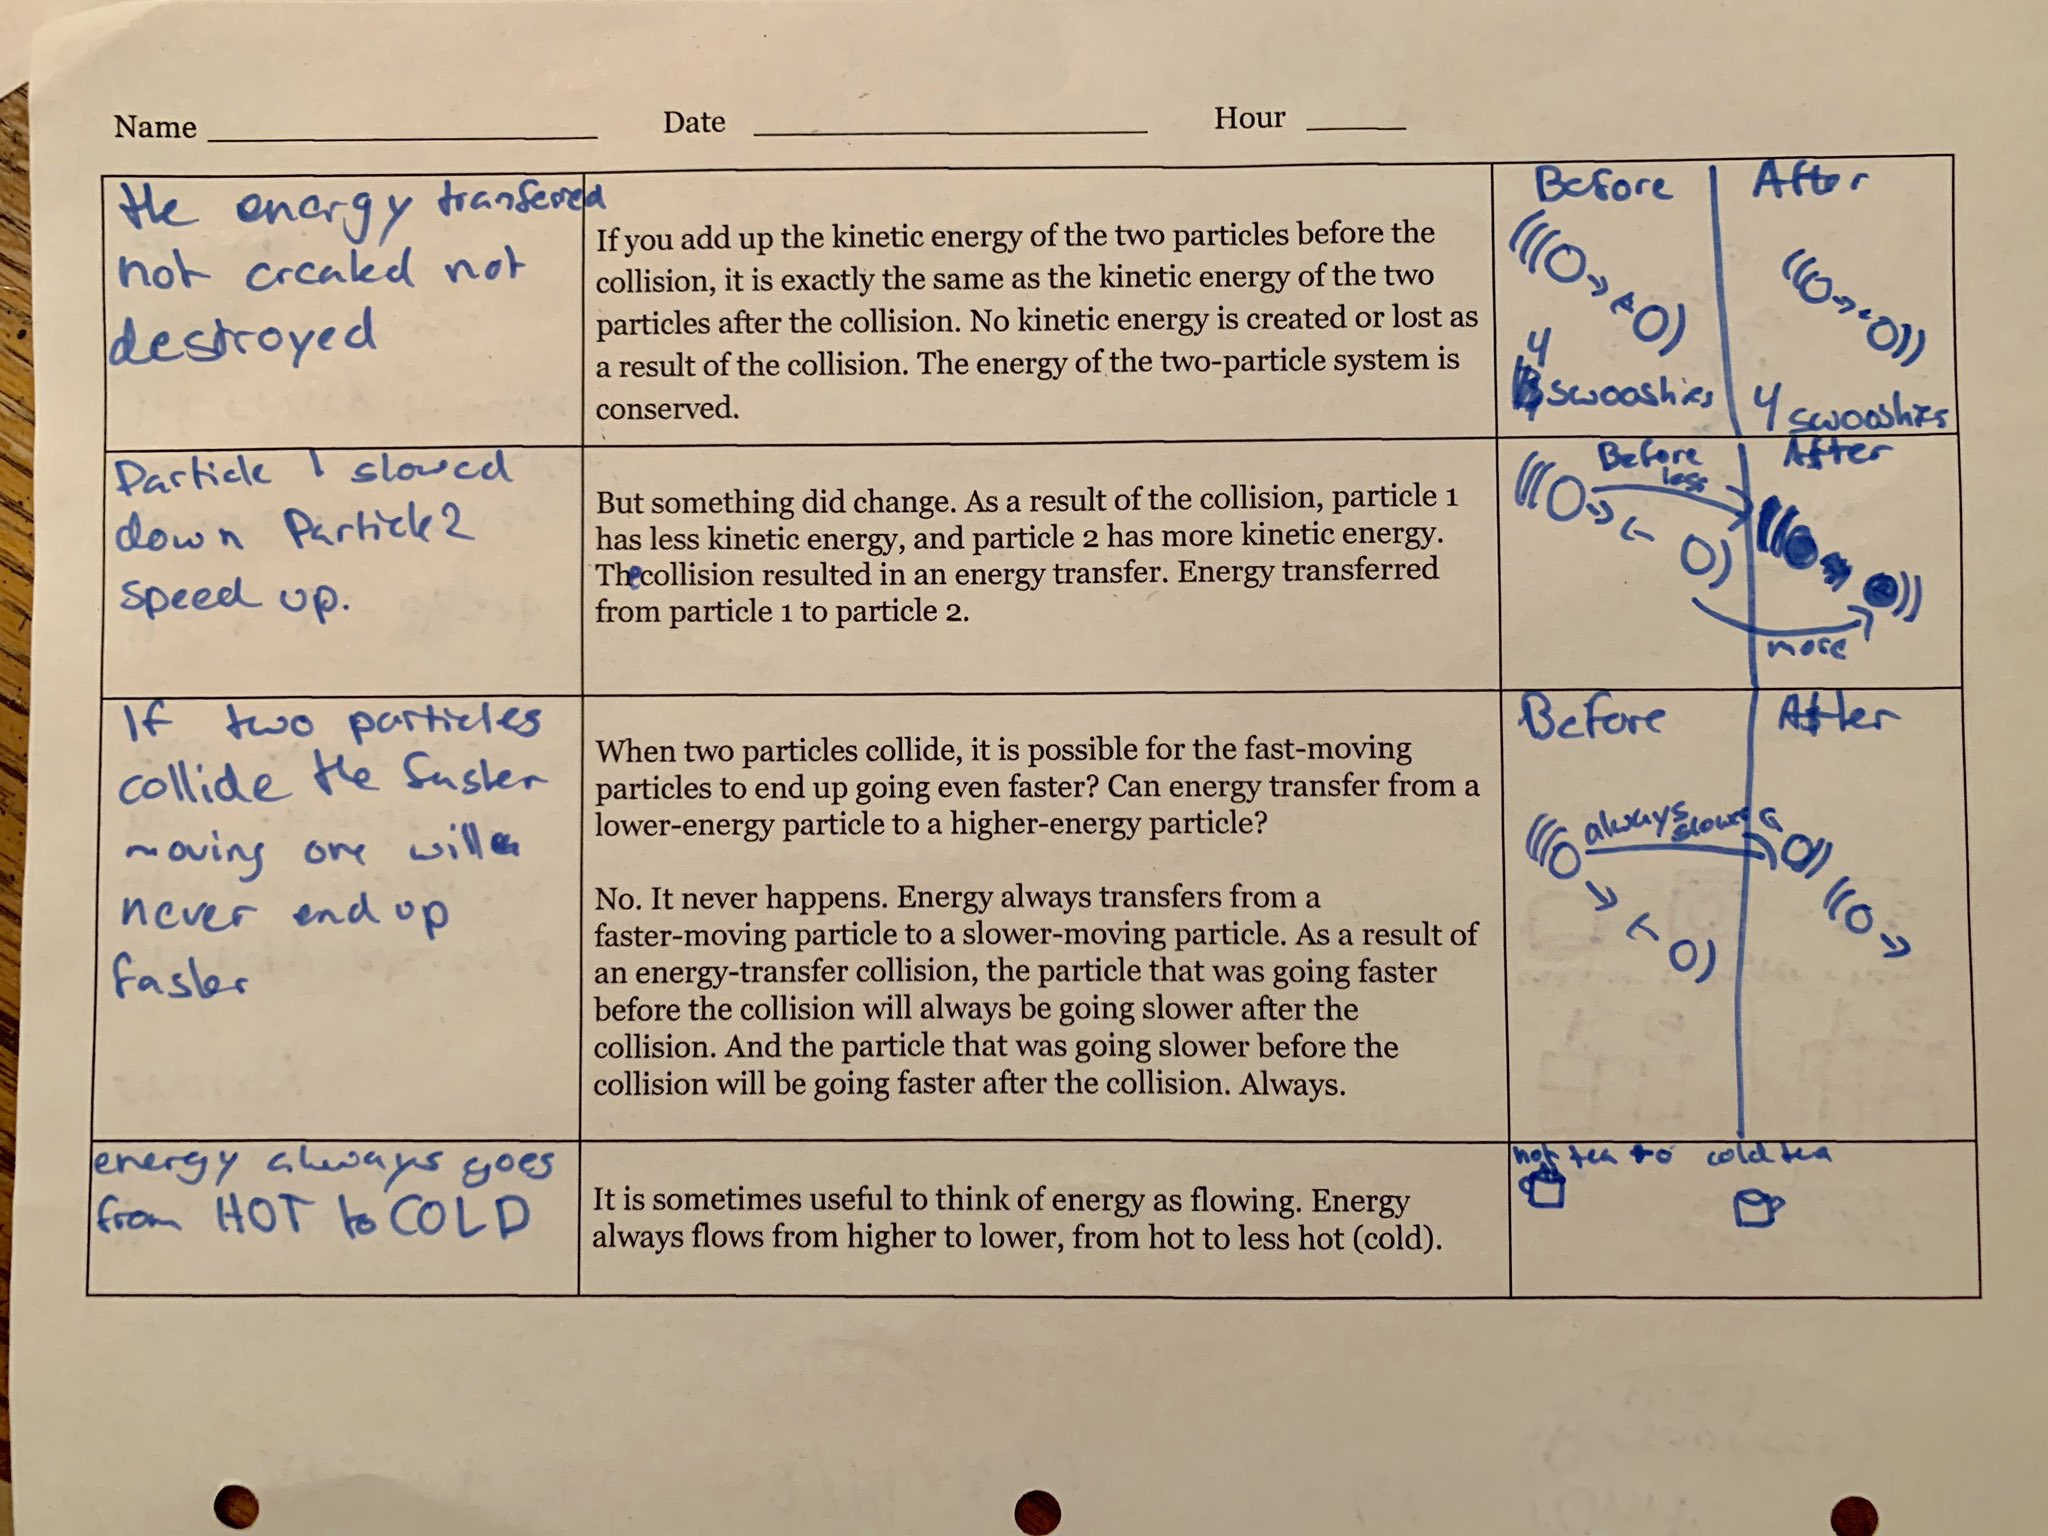 Name Date Hour
the energy transfered
not created not
destroyed
If you add up the kinetic energy of the two particles before the
collision, it is exactly the same as the kinetic energy of the two
particles after the collision. No kinetic energy is created or lost as
a result of the collision. The energy of the two-particle system is
conserved.
Before After
4
swooshies
4 swooshies
Particle 1 slowed
down Particle 2
speed up.
But something did change. As a result of the collision, particle 1
has less kinetic energy, and particle 2 has more kinetic energy.
The collision resulted in an energy transfer. Energy transferred
from particle 1 to particle 2.
Before After
less
more
If two particles
collide the faster
moving one will
never end up
faster
When two particles collide, it is possible for the fast-moving
particles to end up going even faster? Can energy transfer from a
lower-energy particle to a higher-energy particle?
No. It never happens. Energy always transfers from a
faster-moving particle to a slower-moving particle. As a result of
an energy-transfer collision, the particle that was going faster
before the collision will always be going slower after the
collision. And the particle that was going slower before the
collision will be going faster after the collision. Always.
Before After
always
slower
energy always goes
from HOT to COLD
It is sometimes useful to think of energy as flowing. Energy
always flows from higher to lower, from hot to less hot (cold).
hot tea to cold tea